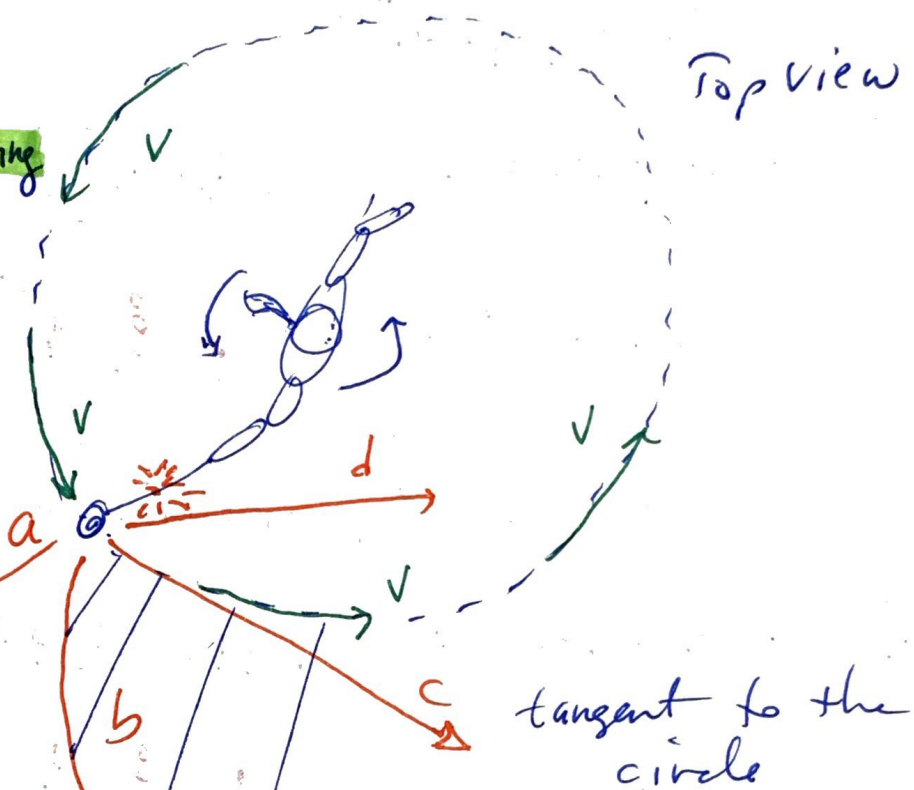 Top View
V
V
d
V
a
V
c
b
tangent to the
circle